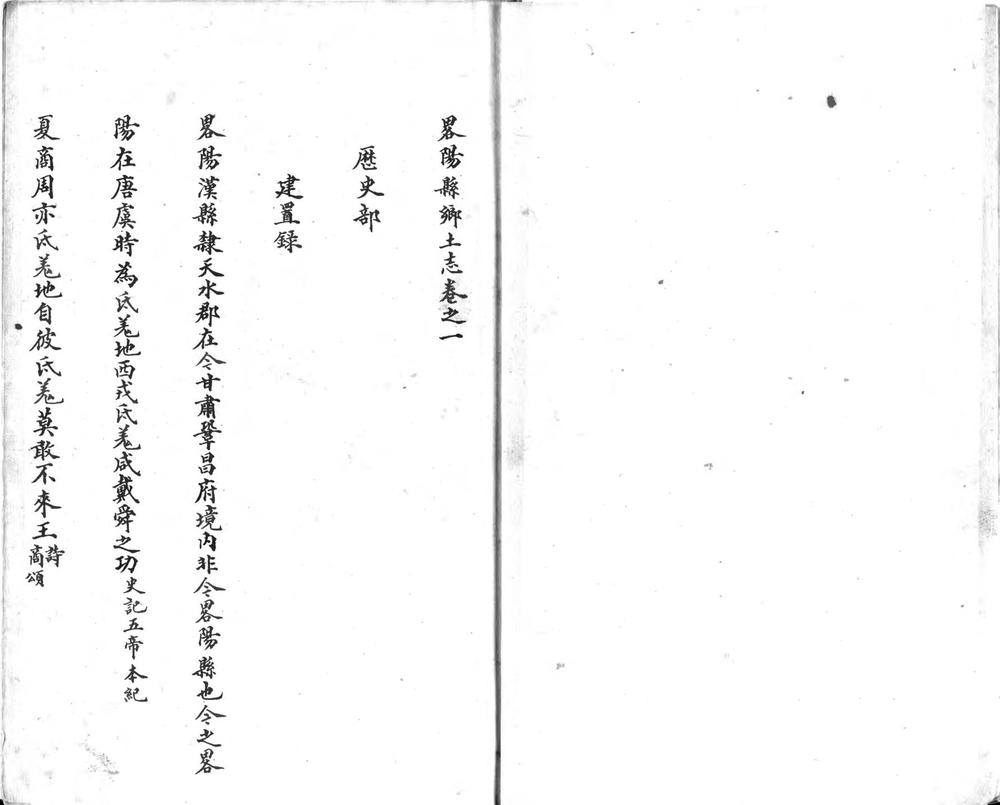 畧陽縣鄉土志卷之一
歷史部
建置錄
畧陽漢縣隸天水郡在今甘肅鞏昌府境內非今畧陽縣也今之畧
陽在唐虞時為氐羌地西戎氐羌咸戴舜之功史記五帝本紀
夏商周亦氐羌地自彼氐羌莫敢不來王詩商頌